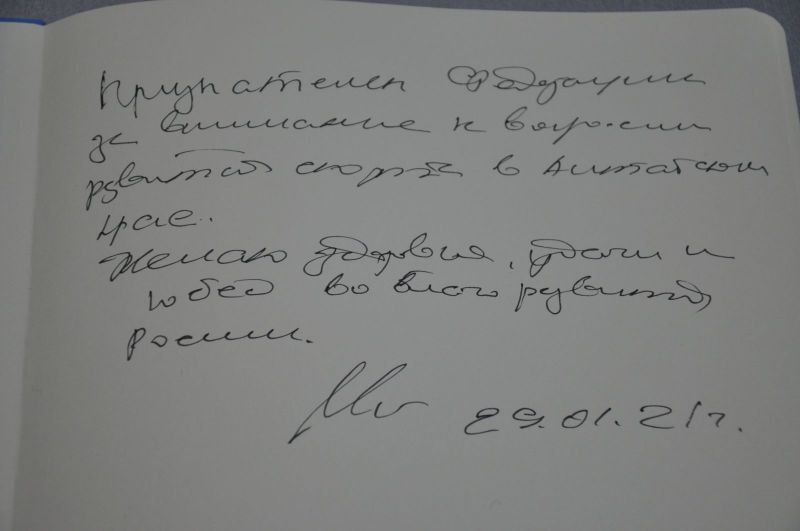 Признателен Федерации
за внимание к вопросам
развития спорта в Алтайском
крае.
Желаю здоровья, удачи и
побед во благо развития
России.
29.01.21г.